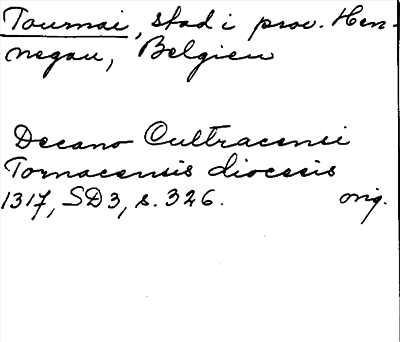 Tournai, stad i prov. Hen-
negau, Belgien
Decano Cultracensi
Tornacensis diocesis
1317, SD3, s. 326. orig.